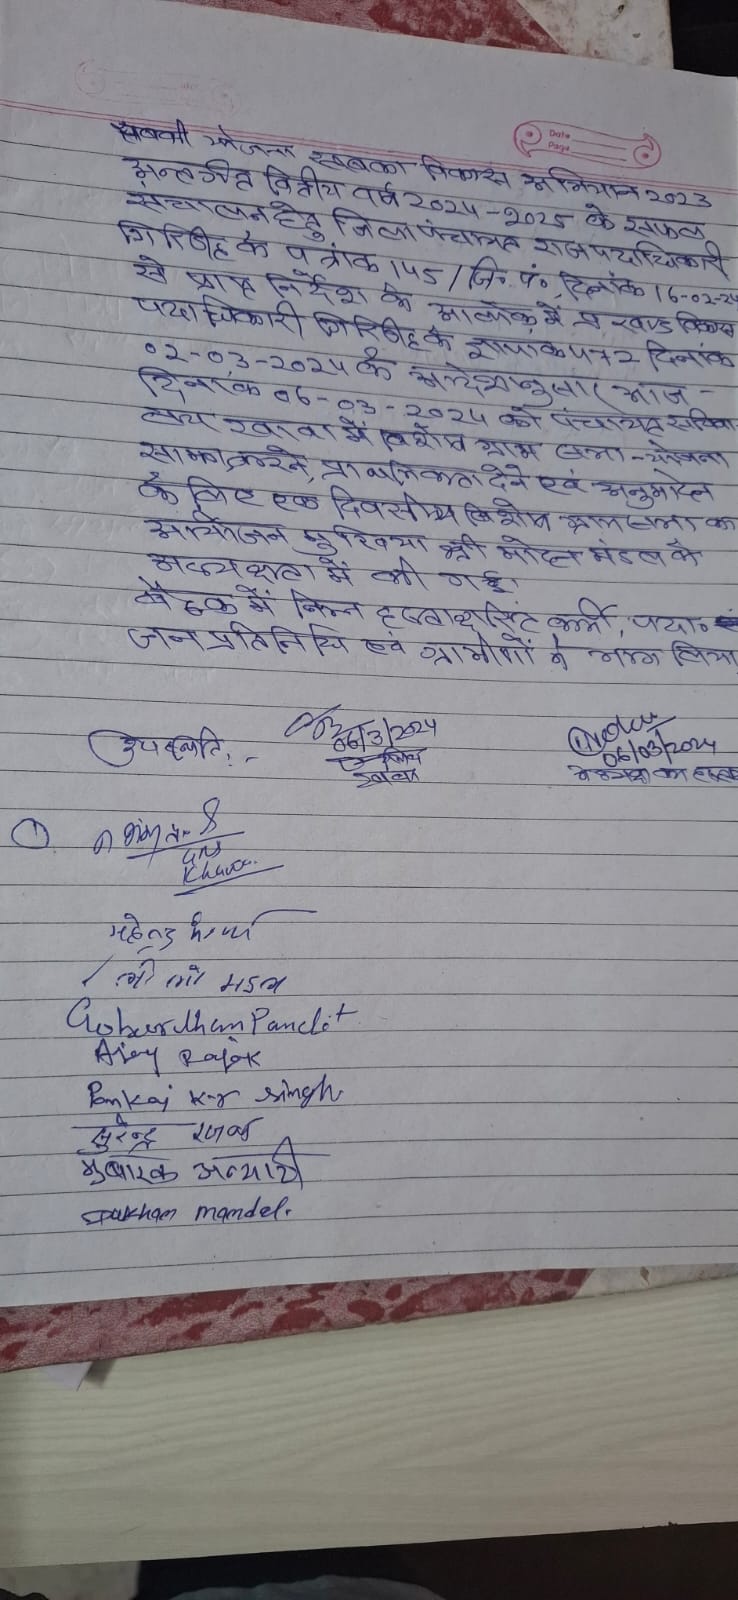 Date
Page
सबकी योजना सबका विकास अभियान 2023
अन्तर्गत वित्तीय वर्ष 2024-2025 के सफल
संचालन हेतु जिला पंचायत राज पदाधिकारी
गिरिडीह के पत्रांक 145/जि० पं०, दिनांक 16-02-24
से प्राप्त निर्देश के आलोक में प्रखण्ड विकास
पदाधिकारी गिरिडीह के ज्ञापांक 472 दिनांक
02-03-2024 के आदेशानुसार आज-
दिनांक 06-03-2024 को पंचायत सचिवा-
लय खावा में विशेष ग्राम सभा-योजना
साझा करने, प्राथमिकता देने एवं अनुमोदन
के लिए एक दिवसीय विशेष ग्रामसभा का
आयोजन मुखिया श्री मंडल के
अध्यक्षता में की गई।
बैठक में निम्न हस्ताक्षरित कर्मी, पदा०
जनप्रतिनिधि एवं ग्रामीणों ने भाग लिया
उपस्थिति:-
06/3/2024
06/03/2024
①
महेन्द्र
Goburdhan Pandit
Ajay Rajak
Pankaj Kr Singh
सुरेन्द्र रजक
मुबारक अन्सारी
mandal.